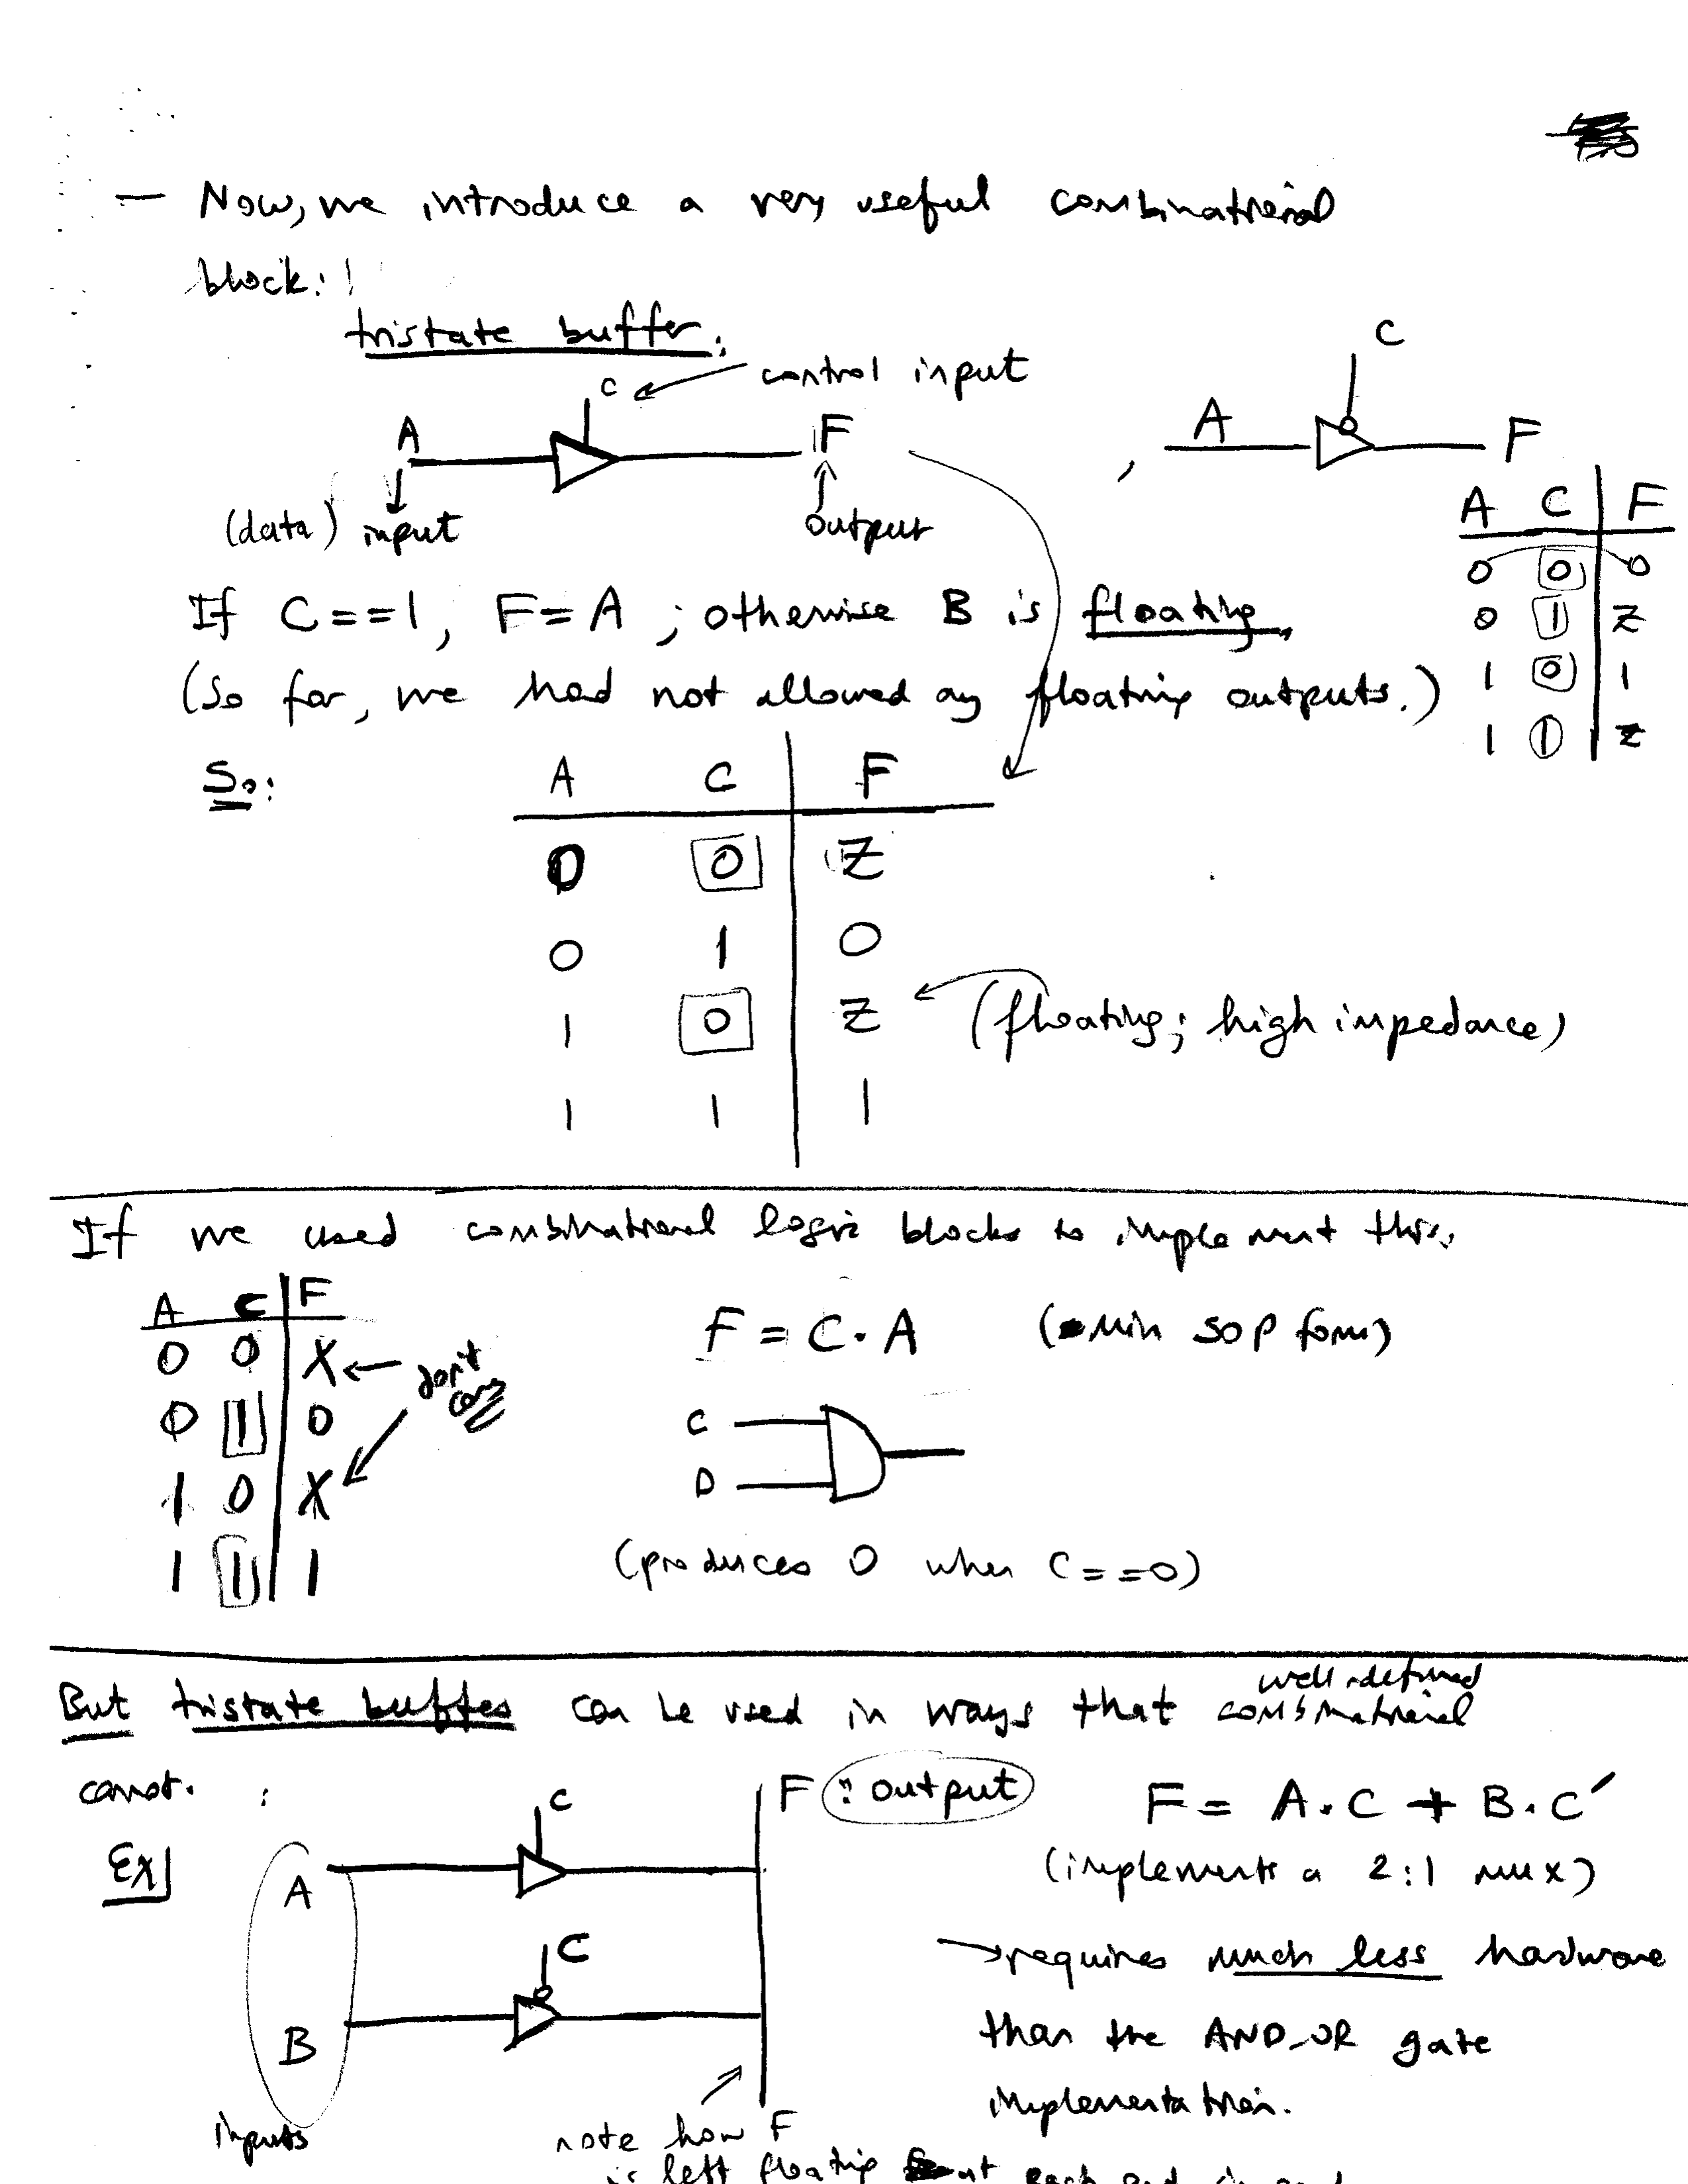 — Now, we introduce a very useful combinational
block:
tristate buffer:
C ← control input
A F
(data) input output
C
A F
A C F
0 0 0
0 1 Z
1 0 1
1 1 Z
If C==1, F=A ; otherwise B is floating.
(So far, we had not allowed any floating outputs.)
So:
A C F
0 0 Z
0 1 0
1 0 Z (floating; high impedance)
1 1 1
If we used combinational logic blocks to implement this,
A C F
0 0 X ← don't care
0 1 0
1 0 X
1 1 1
F = C · A (min SOP form)
C
D
(produces 0 when C==0)
But tristate buffes can be used in ways that well-defined combinational
cannot. :
Ex
A
C
B
C
inputs
F : output
F = A.C + B.C'
(implements a 2:1 mux)
→ requires much less hardware
than the AND-OR gate
implementation.
note how F
is left floating at each end